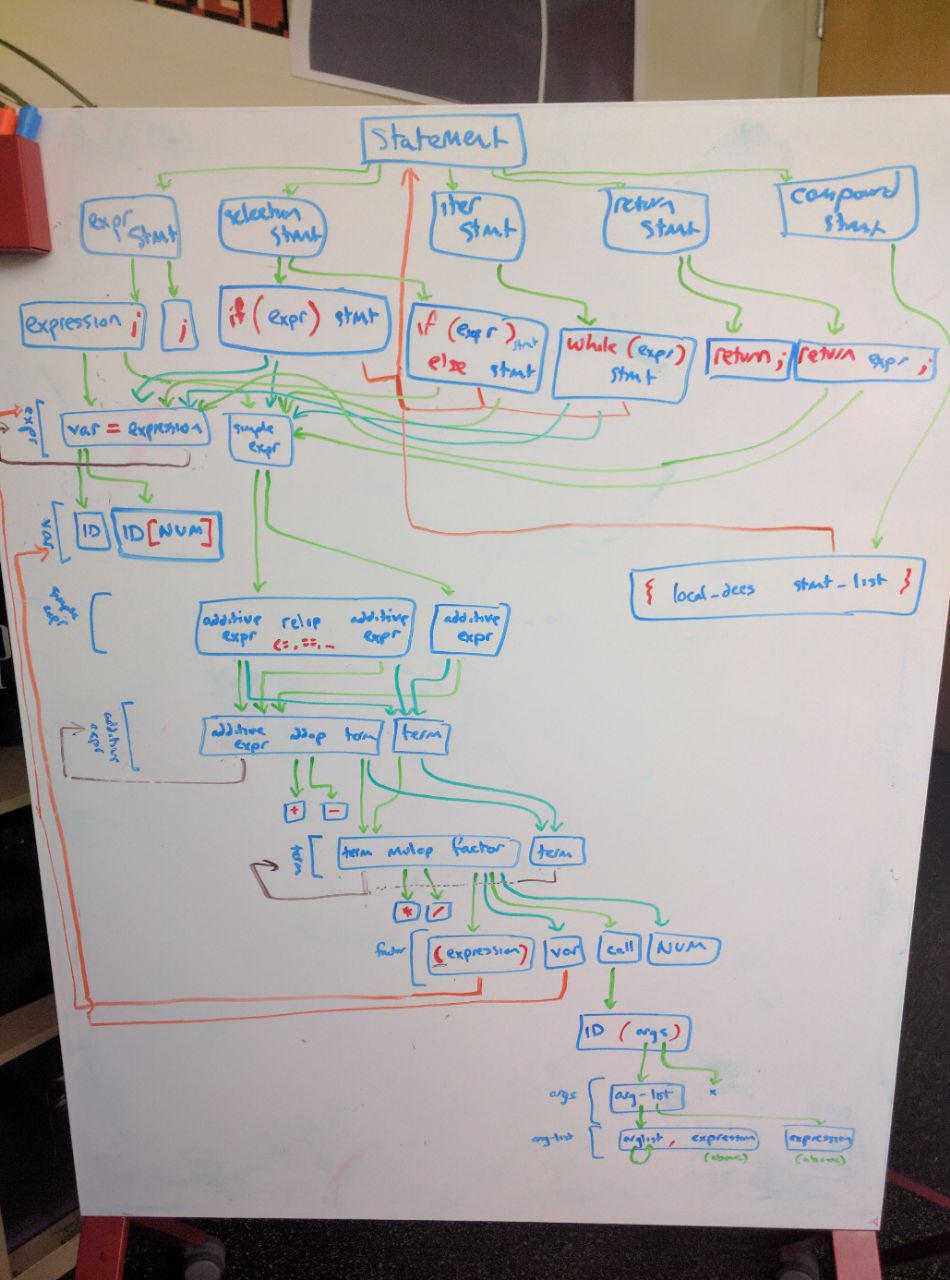 Statement
expr
stmt
selection
stmt
iter
stmt
return
stmt
compound
stmt
expression ;
;
if (expr) stmt
if (expr) stmt
else stmt
while (expr)
stmt
return ;
return expr ;
expr
var = expression
simple
expr
var
ID
ID [NUM]
{ local_decs stmt_list }
simple
expr
additive relop additive
expr <=, ==, ... expr
additive
expr
additive
expr
additive addop term
expr
term
+
-
term
term mulop factor
term
*
/
factor
(expression)
var
call
NUM
ID (args)
args
arg-list
arg-list
arglist, expression
(above)
expression
(above)